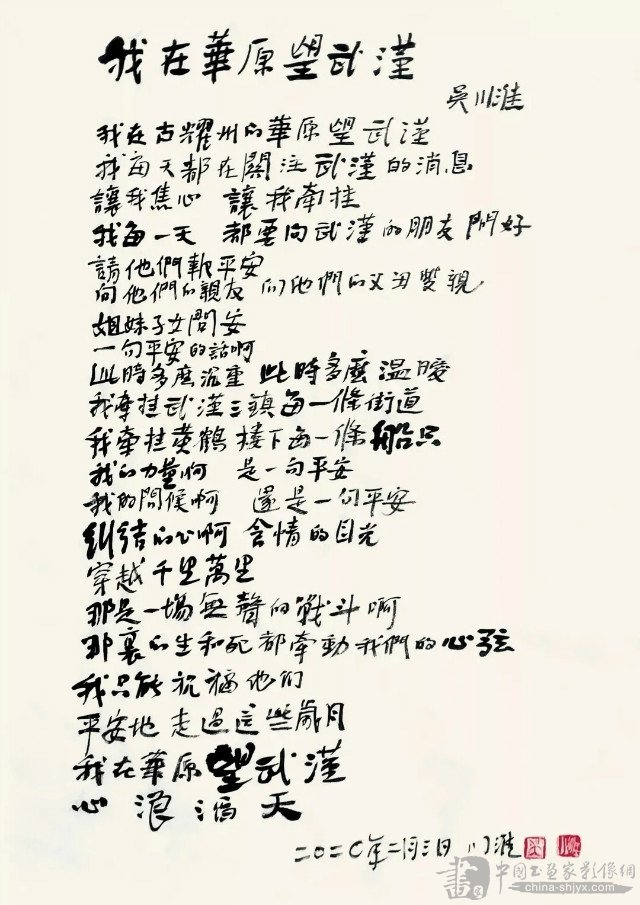 我在華原望武漢
吳川淮
我在古耀州的華原望武漢
我每天都在關注武漢的消息
讓我焦心 讓我牽挂
我每一天 都要向武漢的朋友問好
請他們報平安
向他們的親友 向他們的父母雙親
姐妹子女問安
一句平安的話啊
此時多麼沉重 此時多麼温暖
我牽挂武漢三鎮每一條街道
我牽挂黄鶴樓下每一條船只
我的力量啊 是一句平安
我的問候啊 還是一句平安
糾結的心啊 含情的目光
穿越千里萬里
那是一場無聲的戰斗啊
那裏的生和死都牽動我們的心弦
我只能祝福他们
平安地走過這些歲月
我在華原望武漢
心浪滔天
二〇二〇年二月三日 川淮
中国书画家影像網
china-shjyx.com